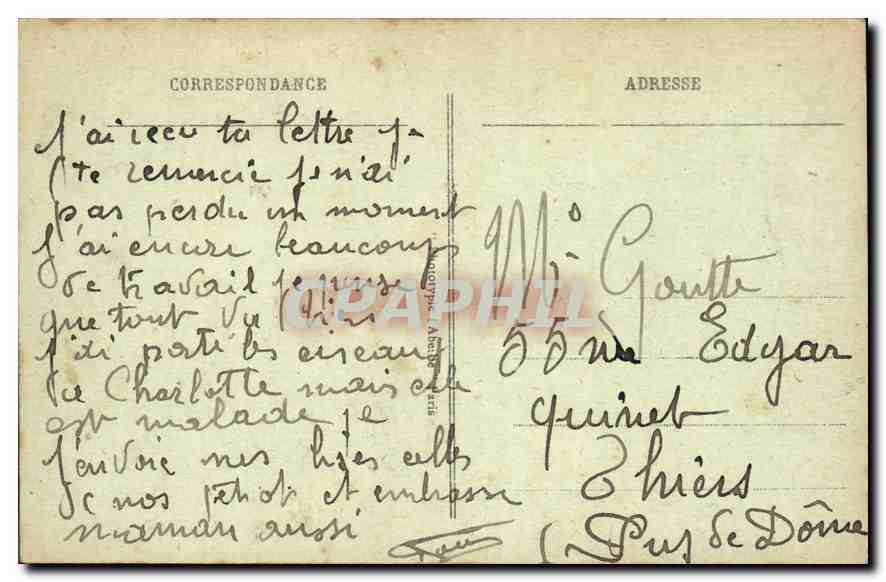 CORRESPONDANCE
J'ai recu ta lettre je
te remercie je n'ai
pas perdu un moment
J'ai encore beaucoup
de travail je pense
que tout va
J'ai porté les ciseaux
de Charlotte mais elle
est malade je
J'envoie mes celles
de nos et embrasse
maman aussi
Phototypie A Paris
CPAPHIL
ADRESSE
Mr Goutte
55 rue Edgar
quinet
Thiers
(Puy de Dôme